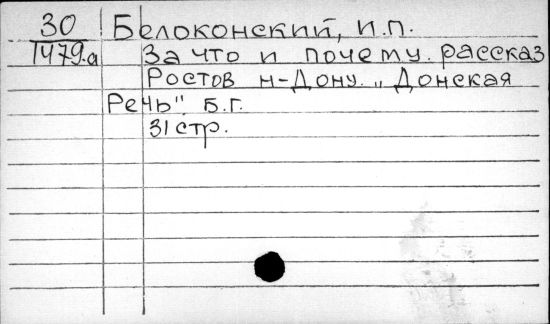 30 Белоконский, И.П.
1479.а За что и почему. рассказ
Ростов н-Дону. „Донская
Речь" Б.Г.
31 стр.